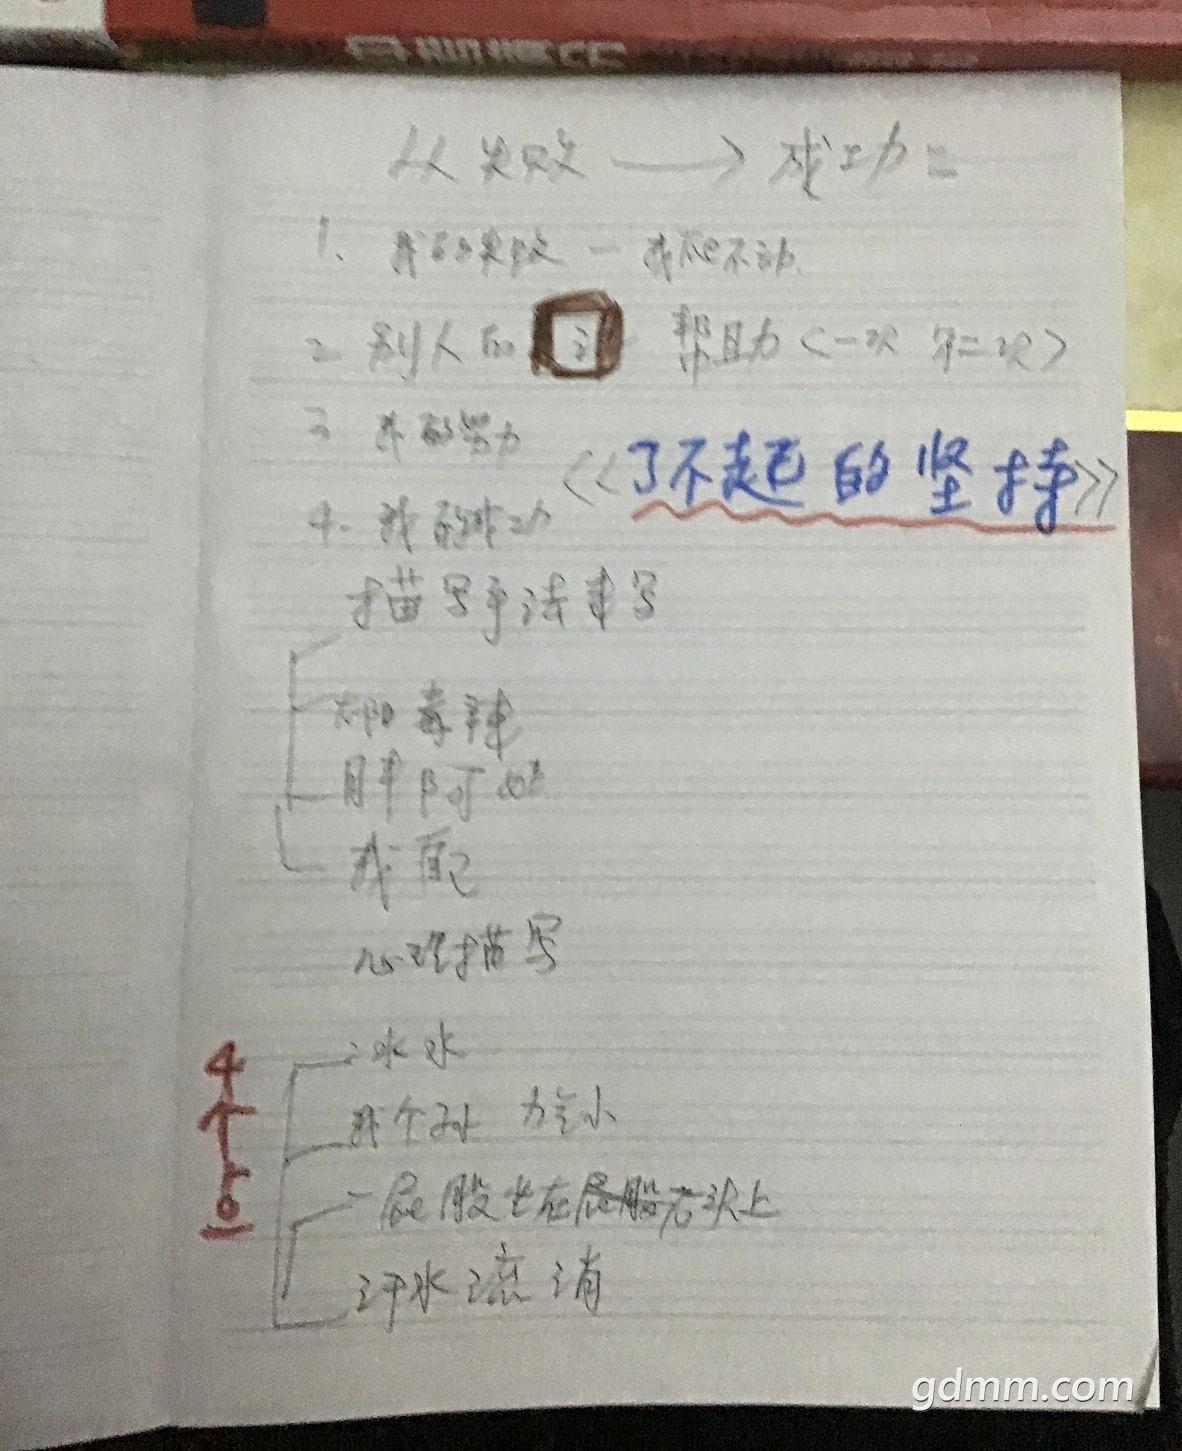 从失败→成功二
1、我的失败 一 我爬不动.
2 别人的 帮助<一次 第二次>
3 我的努力
《了不起的坚持》
4、我的成功
描写手法来写
太阳毒辣
胖阿姨
我自己
心理描写
冰水
我个孙 力气小
一屁股坐在屁股石头上
汗水流消
4个点
gdmm.com